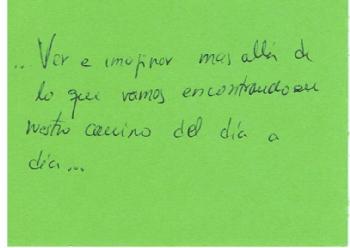 ..Ver e imaginar mas allá de
lo que vamos encontrando en
nuestro camino del día a
día...